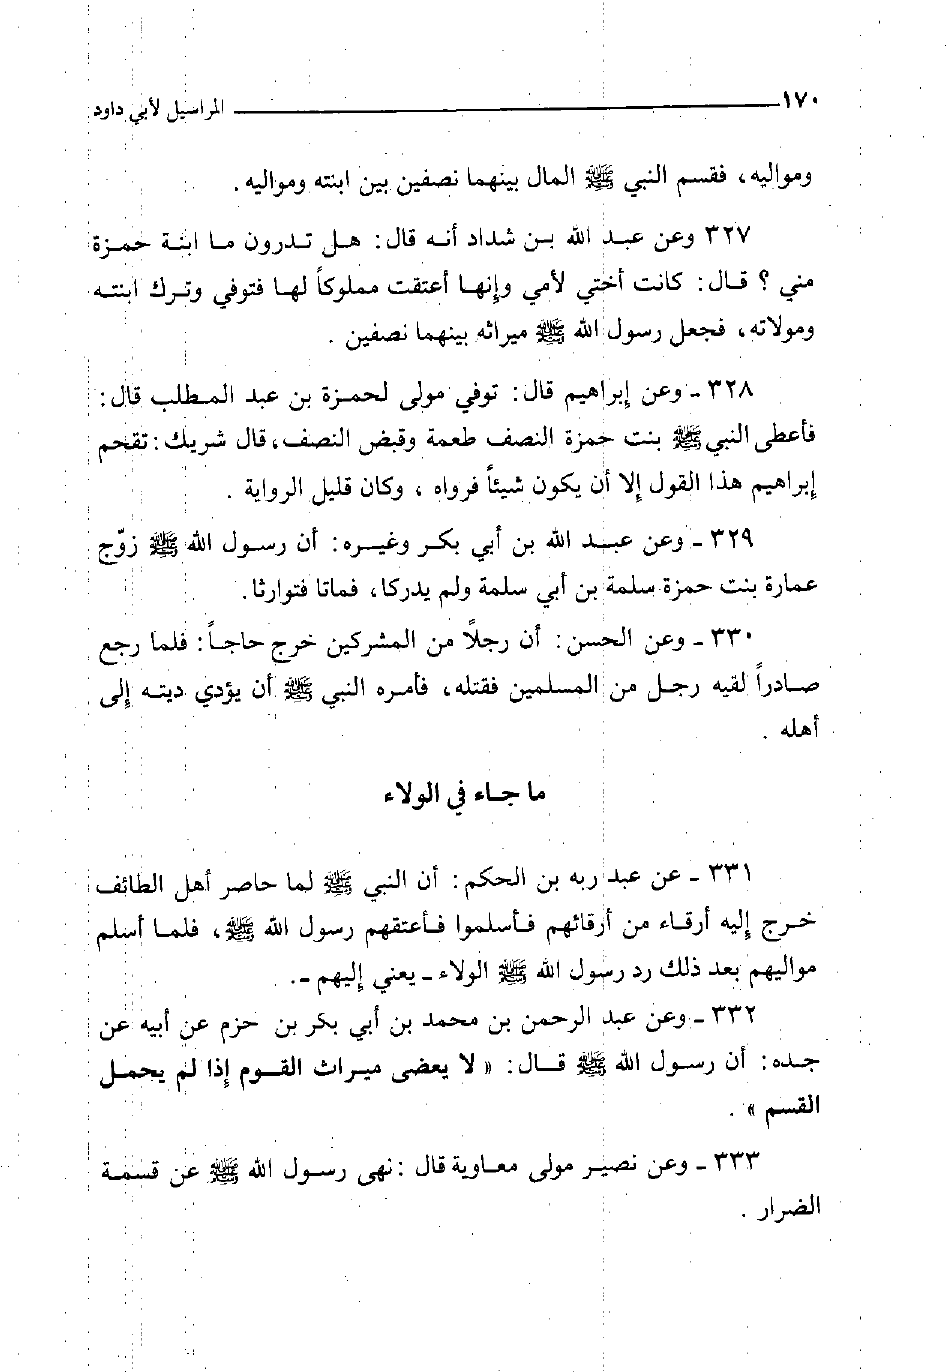 ١٧٠ المراسيل لأبي داود
ومواليه، فقسم النبي ﷺ المال بينهما نصفين بين ابنته ومواليه .
٣٢٧ وعن عبد الله بن شداد أنه قال: هل تدرون ما ابنة حمزة
مني ؟ قال: كانت أختي لأمي وإنها أعتقت مملوكاً لها فتوفي وترك ابنته
ومولاته، فجعل رسول الله ﷺ ميراثه بينهما نصفين .
٣٢٨ ـ وعن إبراهيم قال: توفي مولى لحمزة بن عبد المطلب قال:
فأعطى النبي ﷺ بنت حمزة النصف طعمة وقبض النصف، قال شريك: تقحم
إبراهيم هذا القول إلا أن يكون شيئاً فرواه ، وكان قليل الرواية .
٣٢٩ ـ وعن عبد الله بن أبي بكر وغيره: أن رسول الله ﷺ زوّج
عمارة بنت حمزة سلمة بن أبي سلمة ولم يدركا، فماتا فتوارثا.
٣٣٠ ـ وعن الحسن: أن رجلاً من المشركين خرج حاجاً: فلما رجع
صادراً لقيه رجل من المسلمين فقتله، فأمره النبي ﷺ أن يؤدي ديته إلى
أهله .
ما جاء في الولاء
٣٣١ ـ عن عبد ربه بن الحكم: أن النبي ﷺ لما حاصر أهل الطائف
خرج إليه أرقاء من أرقائهم فأسلموا فأعتقهم رسول الله ﷺ، فلما أسلم
مواليهم بعد ذلك رد رسول الله ﷺ الولاء ـ يعني إليهم ـ.
٣٣٢ ـ وعن عبد الرحمن بن محمد بن أبي بكر بن حزم عن أبيه عن
جده: أن رسول الله ﷺ قال: « لا يعضى ميراث القوم إذا لم يحمل
القسم » .
٣٣٣ ـ وعن نصير مولى معاوية قال :نهى رسول الله ﷺ عن قسمة
الضرار .